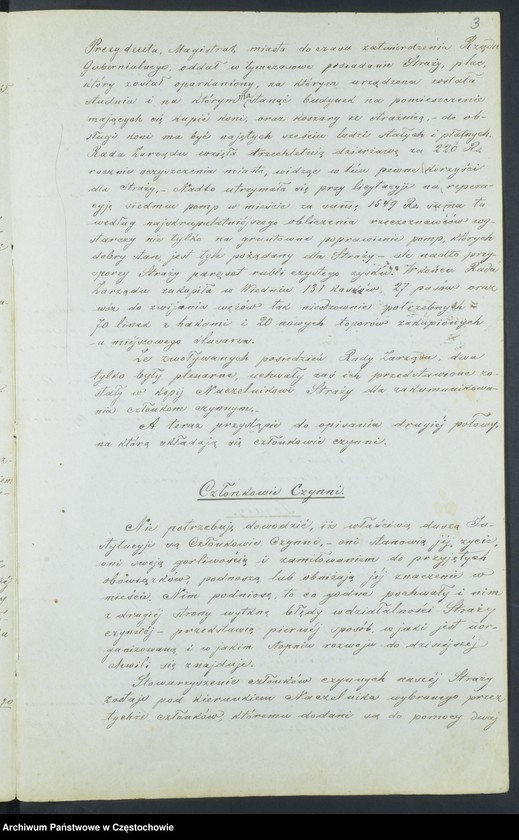 3
Prezydenta, Magistrat miasta do czasu zatwierdzenia Rządu
Gubernialnego, oddał w tymczasowe posiadanie Straży, plac,
który został oparkaniony, za którym urządzona została
studnia i na którym ma stanąć budynek na pomieszczenie
mających się kupić koni, oraz koszary ze Strażnicą, - do ob-
sługi koni ma być najętych sześciu ludzi stałych i płatnych.
Rada Zarządu wzięła trzechletnią dzierżawę za 220 Rs
rocznie oczyszczenia miasta, widząc w tém pewne korzyści
dla Straży. - Nadto utrzymała się przy licytacyi na repera-
cyją siedmiu pomp w mieście za sumę 1549 Rs. suma ta
według najskrupulatniejszego obliczenia rzeczoznawców wy-
starczy nie tylko na gruntowne poprawienie pomp, których
dobry stan, jest tyle pożądany dla Straży - ale nadto przy-
sporzy Straży paręset rubli czystego zysku. Wkońcu Rada
Zarządu zakupiła w Wiedniu 131 kasków, 27 pasów oraz
wóz do zwijania wężów tak niezbędnie potrzebnych -
70 linek z hakami i 20 nowych toporów zakupionych
u miejscowego ślusarza.
Ze zwoływanych posiedzeń Rady Zarządu, dwa
tylko były plenarne, uchwały zaś ich przedstawione zo-
stały w kopij Naczelnikowi Straży dla zakomunikowa-
nia członkom czynnym.
A teraz przystąpię do opisania drugiéj połowy,
na którą składają się członkowie czynni.
Członkowie Czynni.
Nie potrzebuję dowodzić, iż właściwą duszą In-
stytucyi są Członkowie Czynni, - oni stanowią jéj życie,
oni swoją gorliwością i zamiłowaniem do przyjętych
obowiązków, podnoszą lub obniżają jéj znaczenie w
mieście. Nim podniosę, to co godne pochwały i nim
z drugiéj strony wytknę błędy w działalności Straży
czynnéj - przedstawię pierwéj sposób, w jaki jest uor-
ganizowaną i w jakim stopniu rozwoju do dzisiejszéj
chwili się znajduje.
Stowarzyszenie członków czynnych naszéj Straży
zostaje pod kierunkiem Naczelnika wybranego przez
tychże członków, któremu dodani są do pomocy dwaj
Archiwum Państwowe w Częstochowie